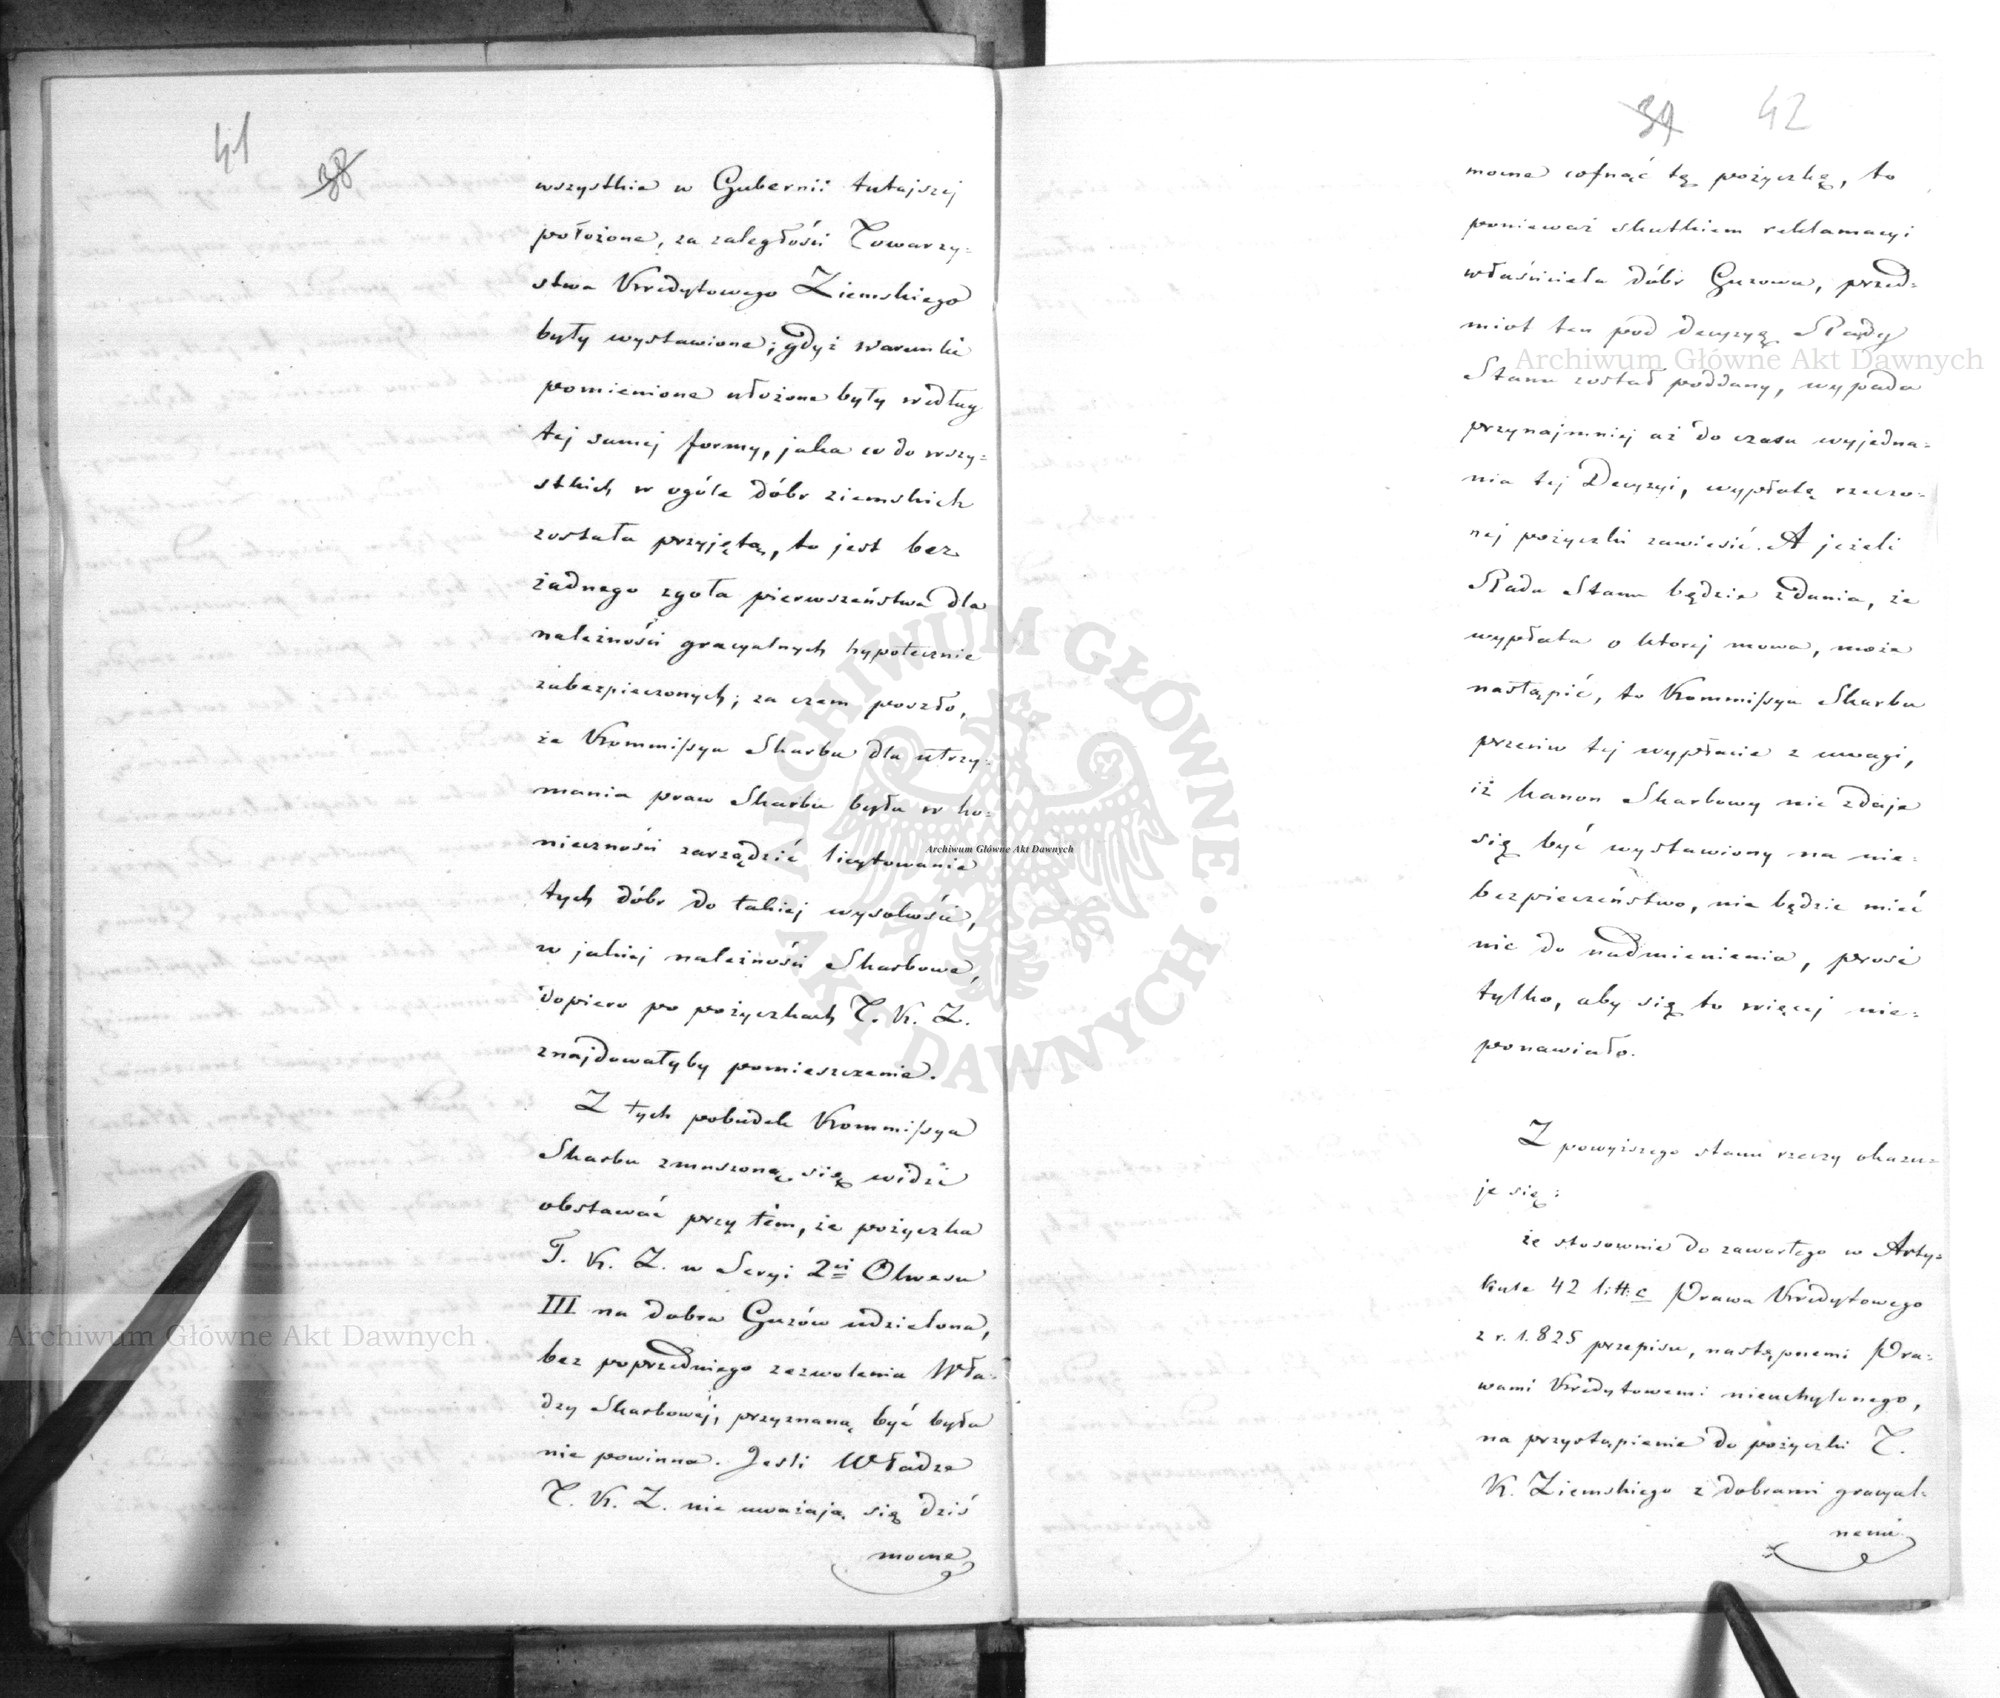 41
38
wszystkie w Gubernii tutajszej
położone, za zaległości Towarzy-
stwa Kredytowego Ziemskiego
były wystawione; gdyż warunki
pomienione ułożone były według
tej samej formy, jaka co do wszy-
stkich w ogóle dóbr ziemskich
została przyjętą, to jest bez
żadnego zgoła pierwszeństwa dla
należności gracyalnych hypotecznie
zabezpieczonych; za czem poszło,
że Kommissya Skarbu dla utrzy-
mania praw Skarbu była w ko-
nieczności zarządzić licytowanie
tych dóbr do takiej wysokości,
w jakiej należności Skarbowe,
dopiero po pożyczkach T. K. Z.
znajdowałyby pomieszczenie.
Z tych pobudek Kommissya
Skarbu zmuszoną się widzi
obstawać przy tém, że pożyczka
T. K. Z. w Seryi 2ei Okresu
III na dobra Guzów udzielona,
bez poprzedniego zezwolenia Wła-
dzy Skarbowéj, przyznaną być była
nie powinna. Jeśli Władze
T. K. Z. nie uważają się dziś
mocne
39
42
mocne cofnąć tę pożyczkę, to
ponieważ skutkiem reklamacyi
właściciela dóbr Guzowa, przed-
miot ten pod decyzyą Rady
Stanu został poddany, wypada
przynajmniej aż do czasu wyjedna-
nia tej Decyzyi, wypłatę rzeczo-
nej pożyczki zawiesić. A jeżeli
Rada Stanu będzie zdania, że
wypłata o ktorej mowa, może
nastąpić, to Kommissya Skarbu
przeciw tej wypłacie z uwagi,
iż kanon Skarbowy nie zdaje
się być wystawiony na nie-
bezpieczeństwo, nie będzie mieć
nic do nadmienienia, prosi
tylko, aby się to więcej nie-
ponawiało.
Z powyższego stanu rzeczy okazu-
je się:
że stosownie do zawartego w Arty-
kule 42 litt: c Prawa Kredytowego
z r. 1.825 przepisu, następnemi Pra-
wami Kredytowemi nieuchylonego,
na przystąpienie do pożyczki T.
K. Ziemskiego z dobrami gracyal-
nemi
Archiwum Główne Akt Dawnych
Archiwum Główne Akt Dawnych
Archiwum Główne Akt Dawnych
ARCHIWUM GŁÓWNE · AKT DAWNYCH ·